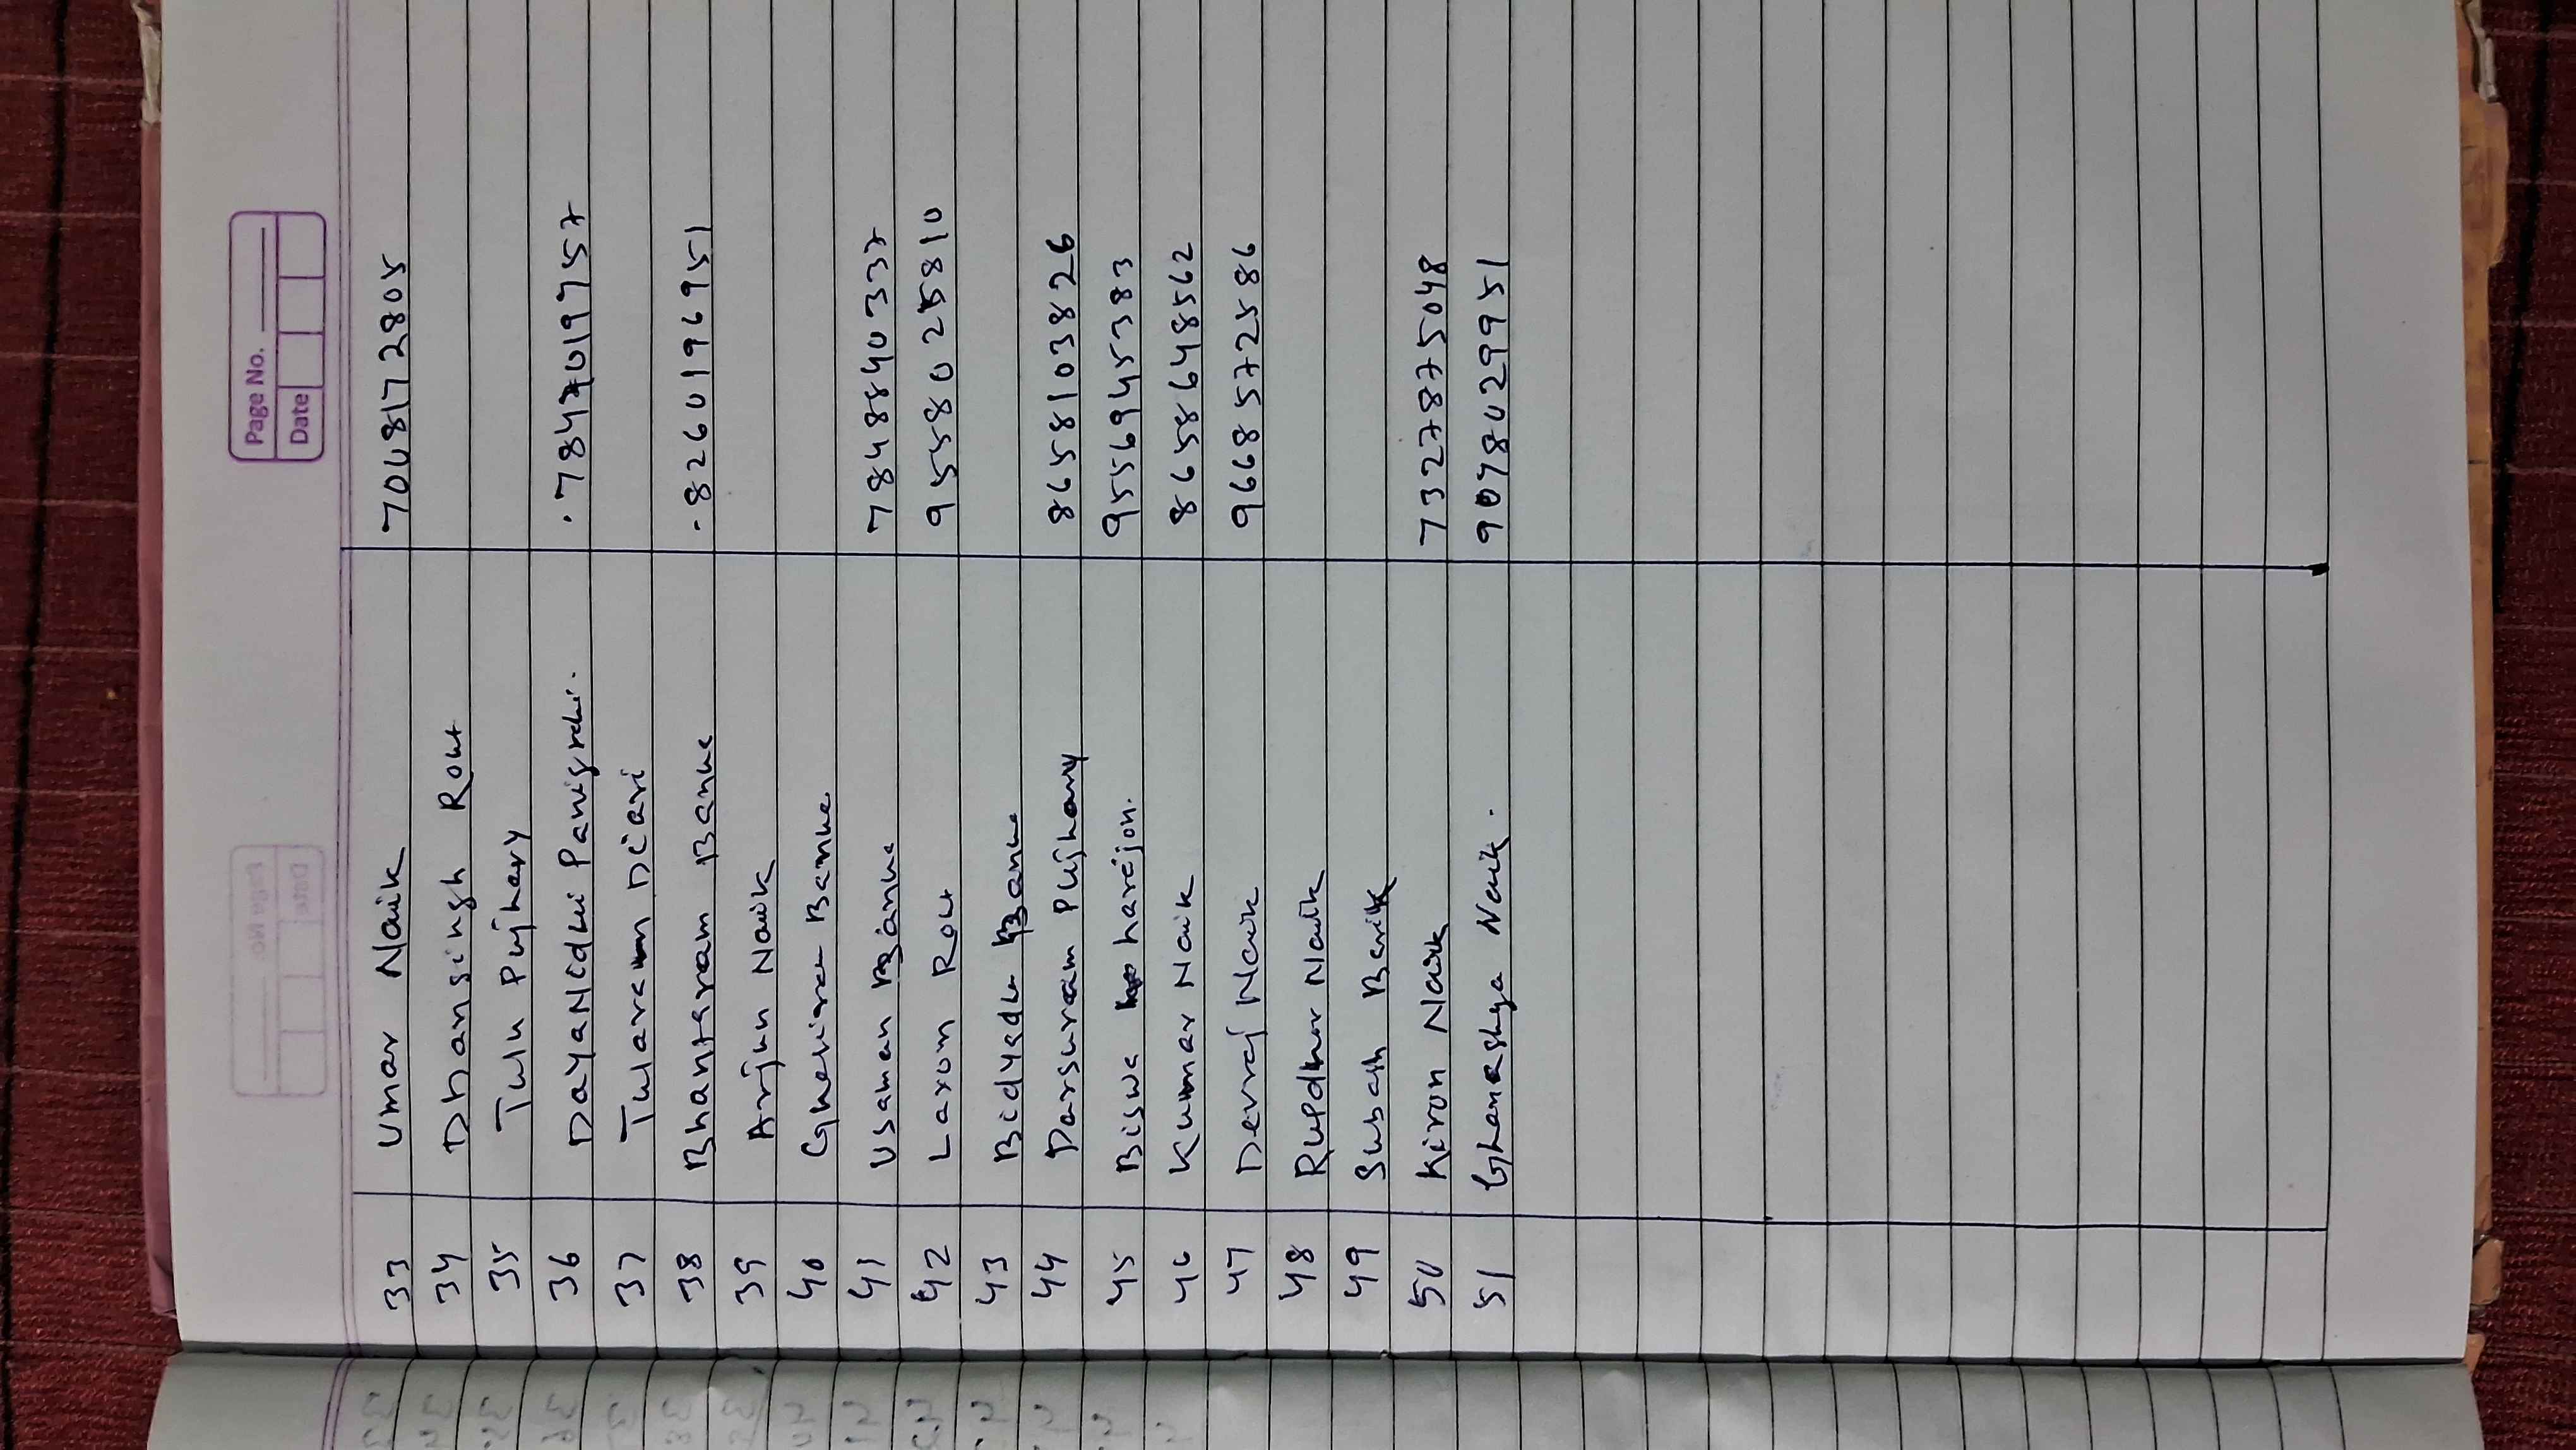 Page No.
Date
33 Umar Naik 7008172805
34 Dhansingh Rout
35 Tulu Pujhary
36 DayaNidhi Panigrahi. . 7847019757
37 Tularam Diari
38 Bhantaram Banke - 8260196951
39 Arjun Naik
40 Ghenira Banke
41 Usaman Banke 7848840337
42 Laxom Rout 9558025810
43 Bidyadu Banke
44 Parsuram Pujhary 8658103826
45 Biswa harijon. 9556945383
46 Kumar Naik 8658648562
47 Devraj Naik 9668572586
48 Rupdhar Naik
49 Subash Barik
50 Kiron Naik 7327875048
51 Ghanashya Naik. 9078029951